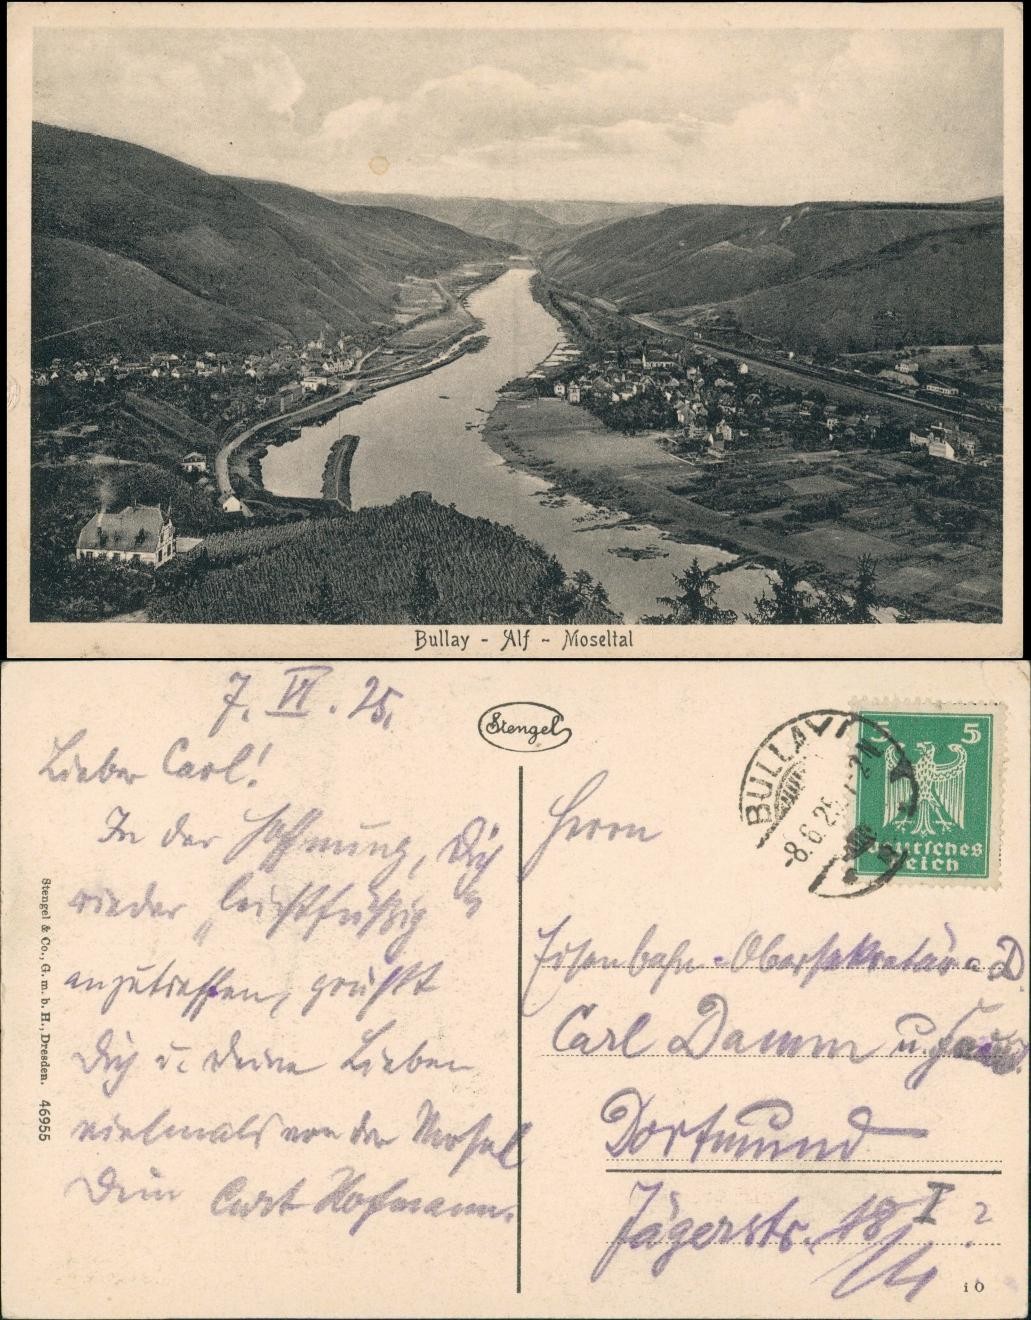 Bullay - Alf - Moseltal
7. VI. 25.
Lieber Carl!
In der Hoffnung, Dich
wieder „leichtfüßig“
anzutreffen, grüßt
Dich u. Deine Lieben
vielmals von der Mosel
Dein Curt Hofmann.
Stengel & Co., G. m. b. H., Dresden. 46955
Stengel
BULLAY
8.6.25
5 5
Deutsches
Reich
Herrn
Eisenbahn-Obersekretär a. D.
Carl Damm u. Frau
Dortmund
Jägerstr. 18 I ?
16